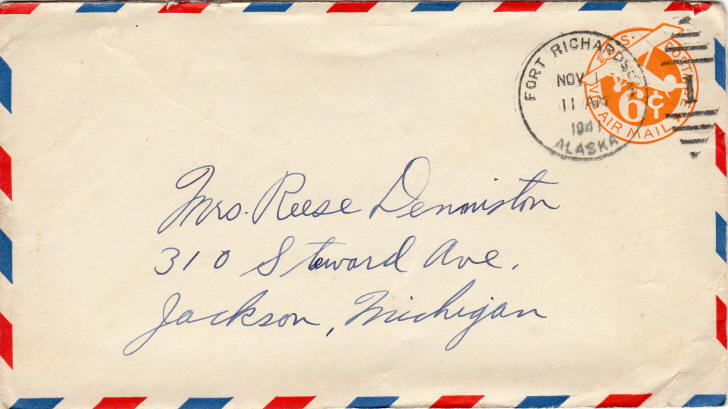 FORT RICHARDSON
NOV 1
11 AM
1941
ALASKA
U.S. POSTAGE
6¢
VIA AIR MAIL
1
Mrs. Reese Denniston
310 Steward Ave.
Jackson, Michigan